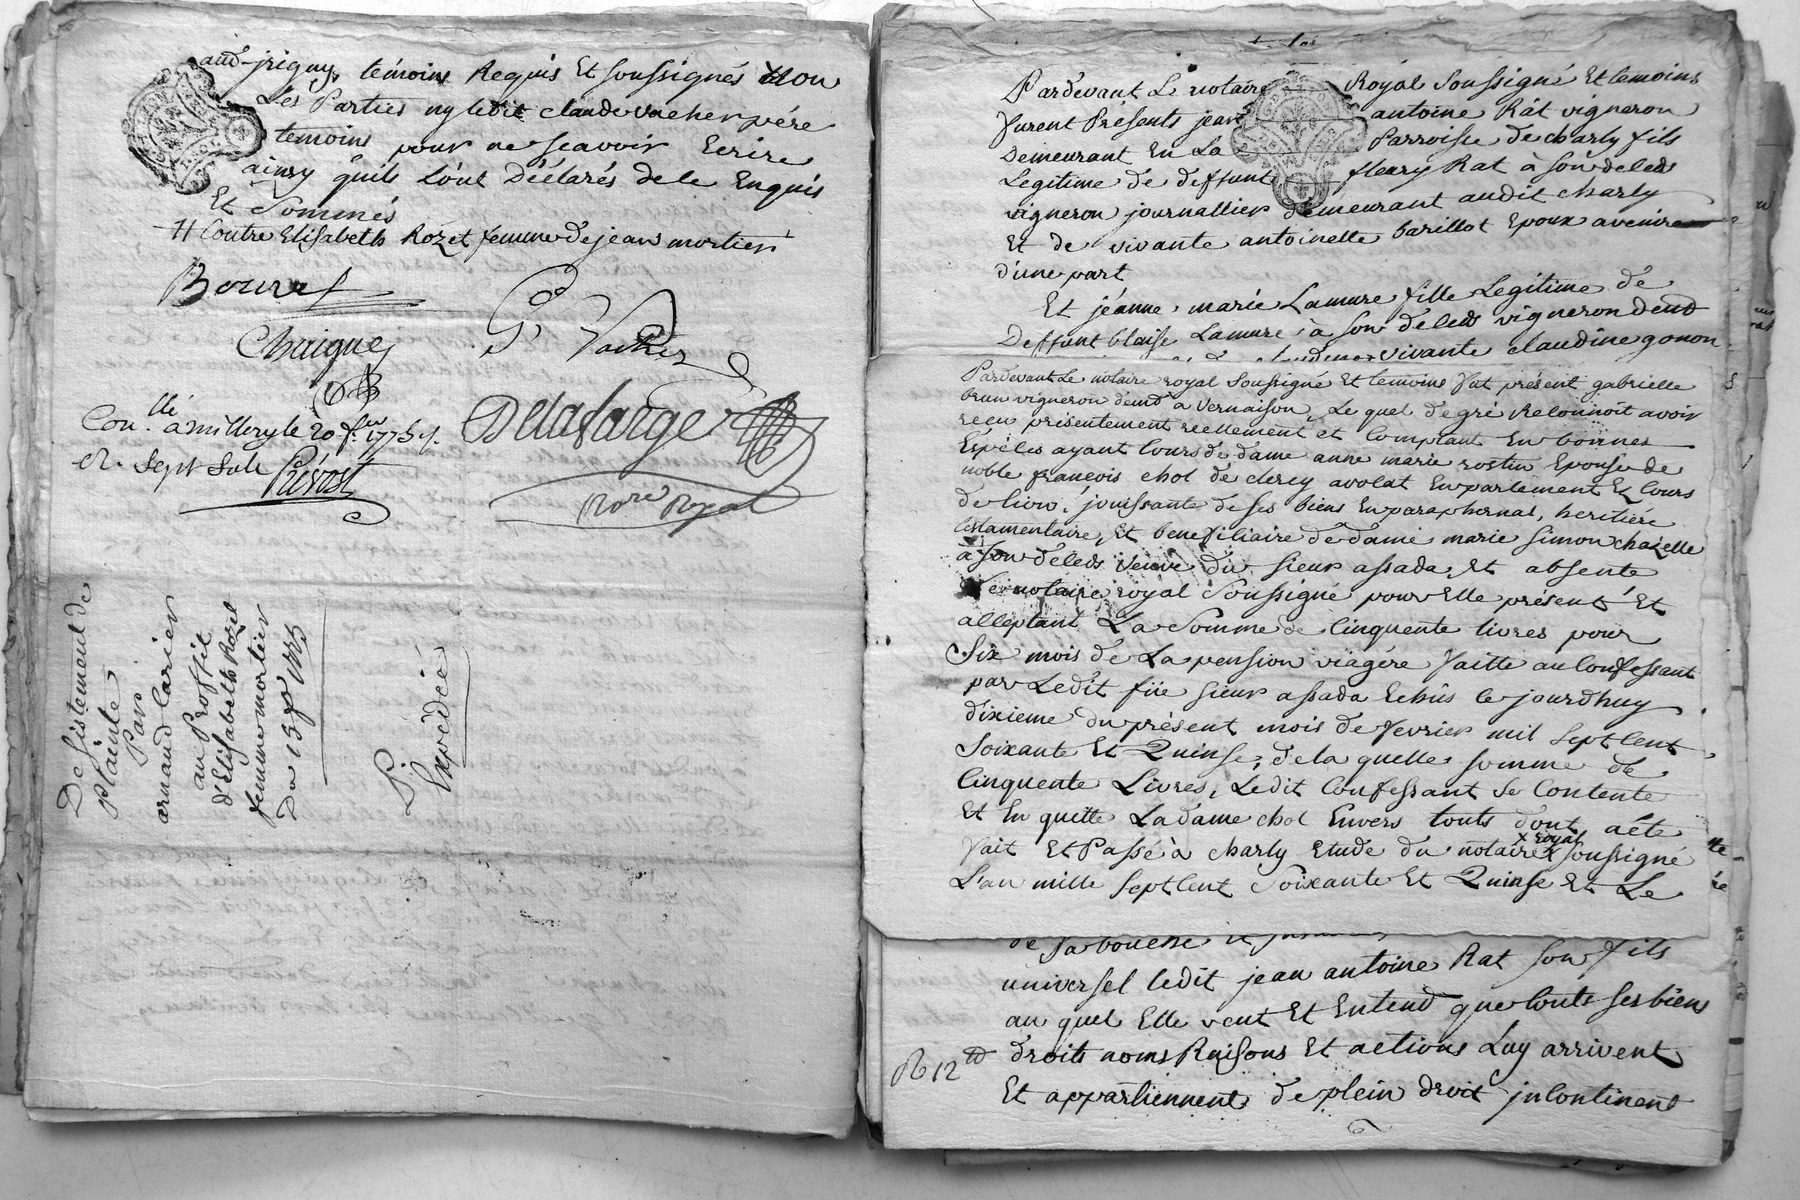 audit jrigny, témoins Requis Et soussignés Non
Les Parties ny ledit claude vacher père
temoins pour ne scavoir Ecrire
ainsy qu'ils L'ont Déclarés de le Enquis
Et Sommés
# Contre Elisabeth Rozet femme de jean mortier
Bourret
G Vacher
Chaignes
Con.llé à millery le 20 f.er 1775
Delafarge
R. Sept Sols Prévost
No.re Royal
Desistement de
Plainte
Par
arnaud larier
au Proffit
d'Elisabeth Rozet
femme mortier
Du 13 1775
P.
Expédiée
Pardevant Le notaire Royal Soussigné Et temoins
furent Présents jean antoine Rat vigneron
Demeurant En La Parroisse de charly fils
Legitime de deffunt fleury Rat à son deleds
vigneron journallier demeurant audit charly
Et de vivante antoinette barillot Epoux avenire
d'une part
Et jéanne marie Lamure fille Legitime de
Deffunt blaise Lamure à son déleds vigneron demt
vivante claudine gonon
Pardevant Le notaire royal Soussigné Et temoins fut présent gabrielle
brun vigneron demt à Vernaison, Le quel de gré Reconnoit avoir
reçu présentement reellement et Comptant En bonnes
Espéces ayant Cours de dame anne marie rostin Epouse de
noble françois chol de clercy avocat En parlement Et Cours
de lion, jouissante de ses biens En paraphernal, heritiére
testamentaire, Et beneficiaire de dame marie Simon chazelle
à son deleds veuve du sieur assada, Et absente
Le notaire royal Soussigné pour Elle présent Et
acceptant La Somme de Cinquente livres pour
Six mois de La pension viagére faitte au Confessant
par Ledit feu sieur assada Echûs ce jourdhuy
dixieme du présent mois de fevrier mil Sept Cent
Soixante Et Quinse, de la quelle somme de
Cinquente Livres, Ledit Confessant se Contente
Et En quitte La dame chol Envers touts dont acte
fait Et Passé à charly Etude du notaire x royal x soussigné
L'an mille Sept Cent Soixante Et Quinse Et Le
de sa bouche
universel ledit jean antoine Rat son fils
au quel Elle veut Et Entend que touts ses biens
R 12 tt droits noms Raisons Et actions Luy arrivent
Et appartiennent de plein droit jncontinent